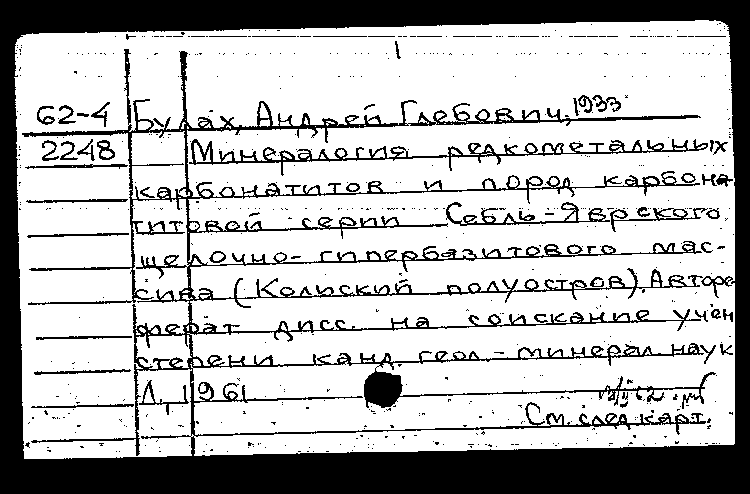 62-4 Булах, Андрей Глебович, 1933
2248 Минералогия редкометальных
карбонатитов и пород карбона-
титовой серии Себль-Яврского
щелочно-гипербазитового мас-
сива (Кольский полуостров). Авторе-
ферат дисс. на соискание учен
степени канд. геол.-минерал. наук
Л., 1961
См. след. карт.